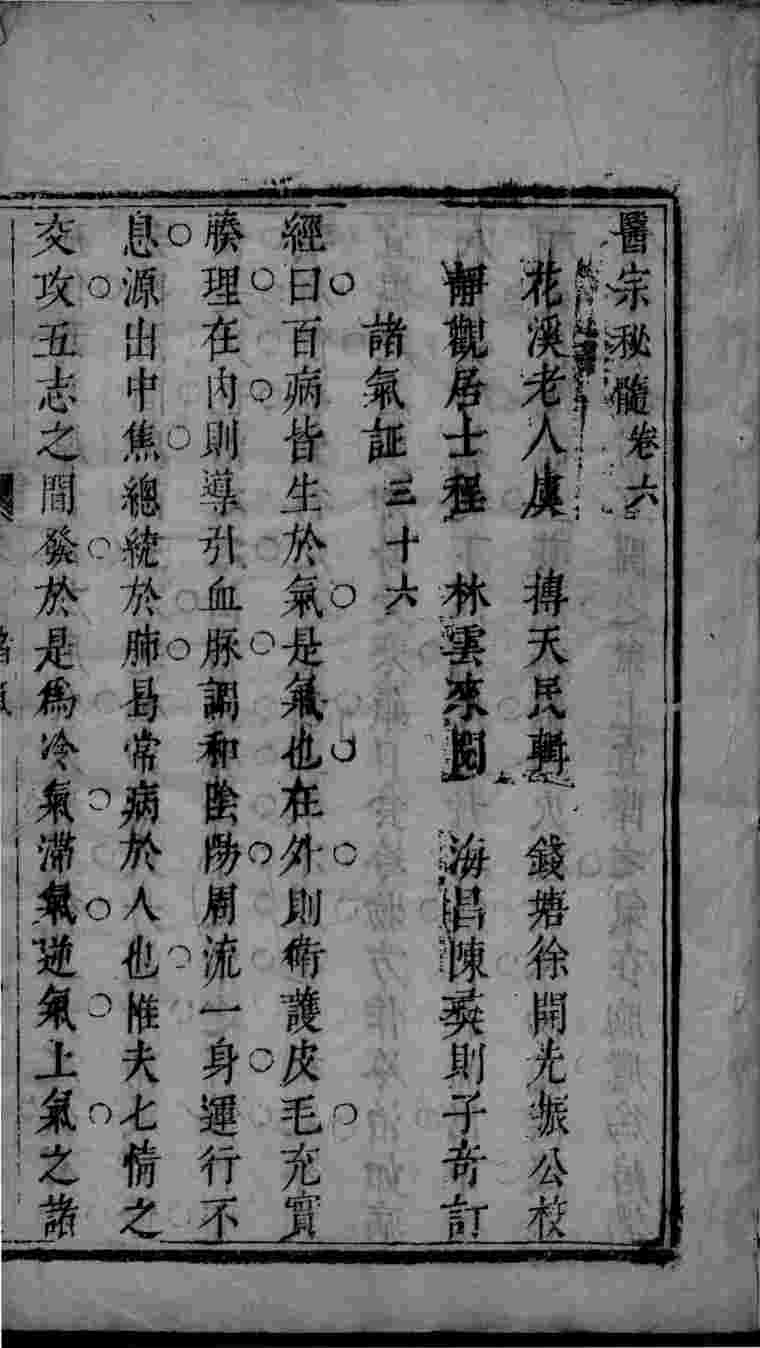 醫宗秘髓卷六
花溪老人虞 摶天民輯 錢塘徐開先振公校
靜觀居士程 林雲來閱 海昌陳英則子奇訂
諸氣証三十六
經曰百病皆生於氣是氣也在外則衛護皮毛充實
腠理在內則導引血脉調和陰陽周流一身運行不
息源出中焦總統於肺曷常病於人也惟夫七情之
交攻五志之間發於是爲冷氣滯氣逆氣上氣之諸